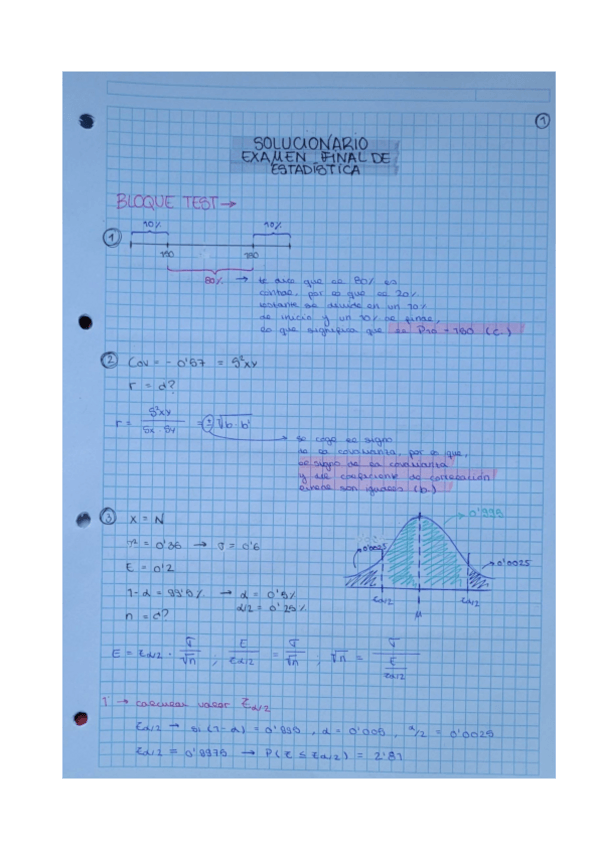 1
SOLUCIONARIO
EXAMEN FINAL DE
ESTADÍSTICA
BLOQUE TEST →
10% 10%
1
80% → te dice que el 80% es
central, por lo que el 20%
restante se divide en un 10%
de inicio y un 10% de final,
lo que significa que el P10 = 180 (c)
2 Cov = - 0'57 = S²xy
r = ¿?
r = S²xy / Sx · Sy = ± √b · b'
→ se coge el signo
de la covarianza, por lo que,
el signo de la covarianza
y del coeficiente de correlación
lineal son iguales (b)
3 X = N
σ² = 0'36 → σ = 0'6
E = 0'2
1-α = 99'5% → α = 0'5%
α/2 = 0'25%
n = ¿?
→ 0'995
→ 0'0025
→ 0'0025
zα/2 μ zα/2
E = zα/2 · σ/√n ; E/zα/2 = σ/√n ; √n = σ / (E/zα/2)
1 → calcular valor Zα/2
zα/2 → si (1-α) = 0'995 , α = 0'005 , α/2 = 0'0025
zα/2 = 0'9975 → P(z ≤ zα/2) = 2'81